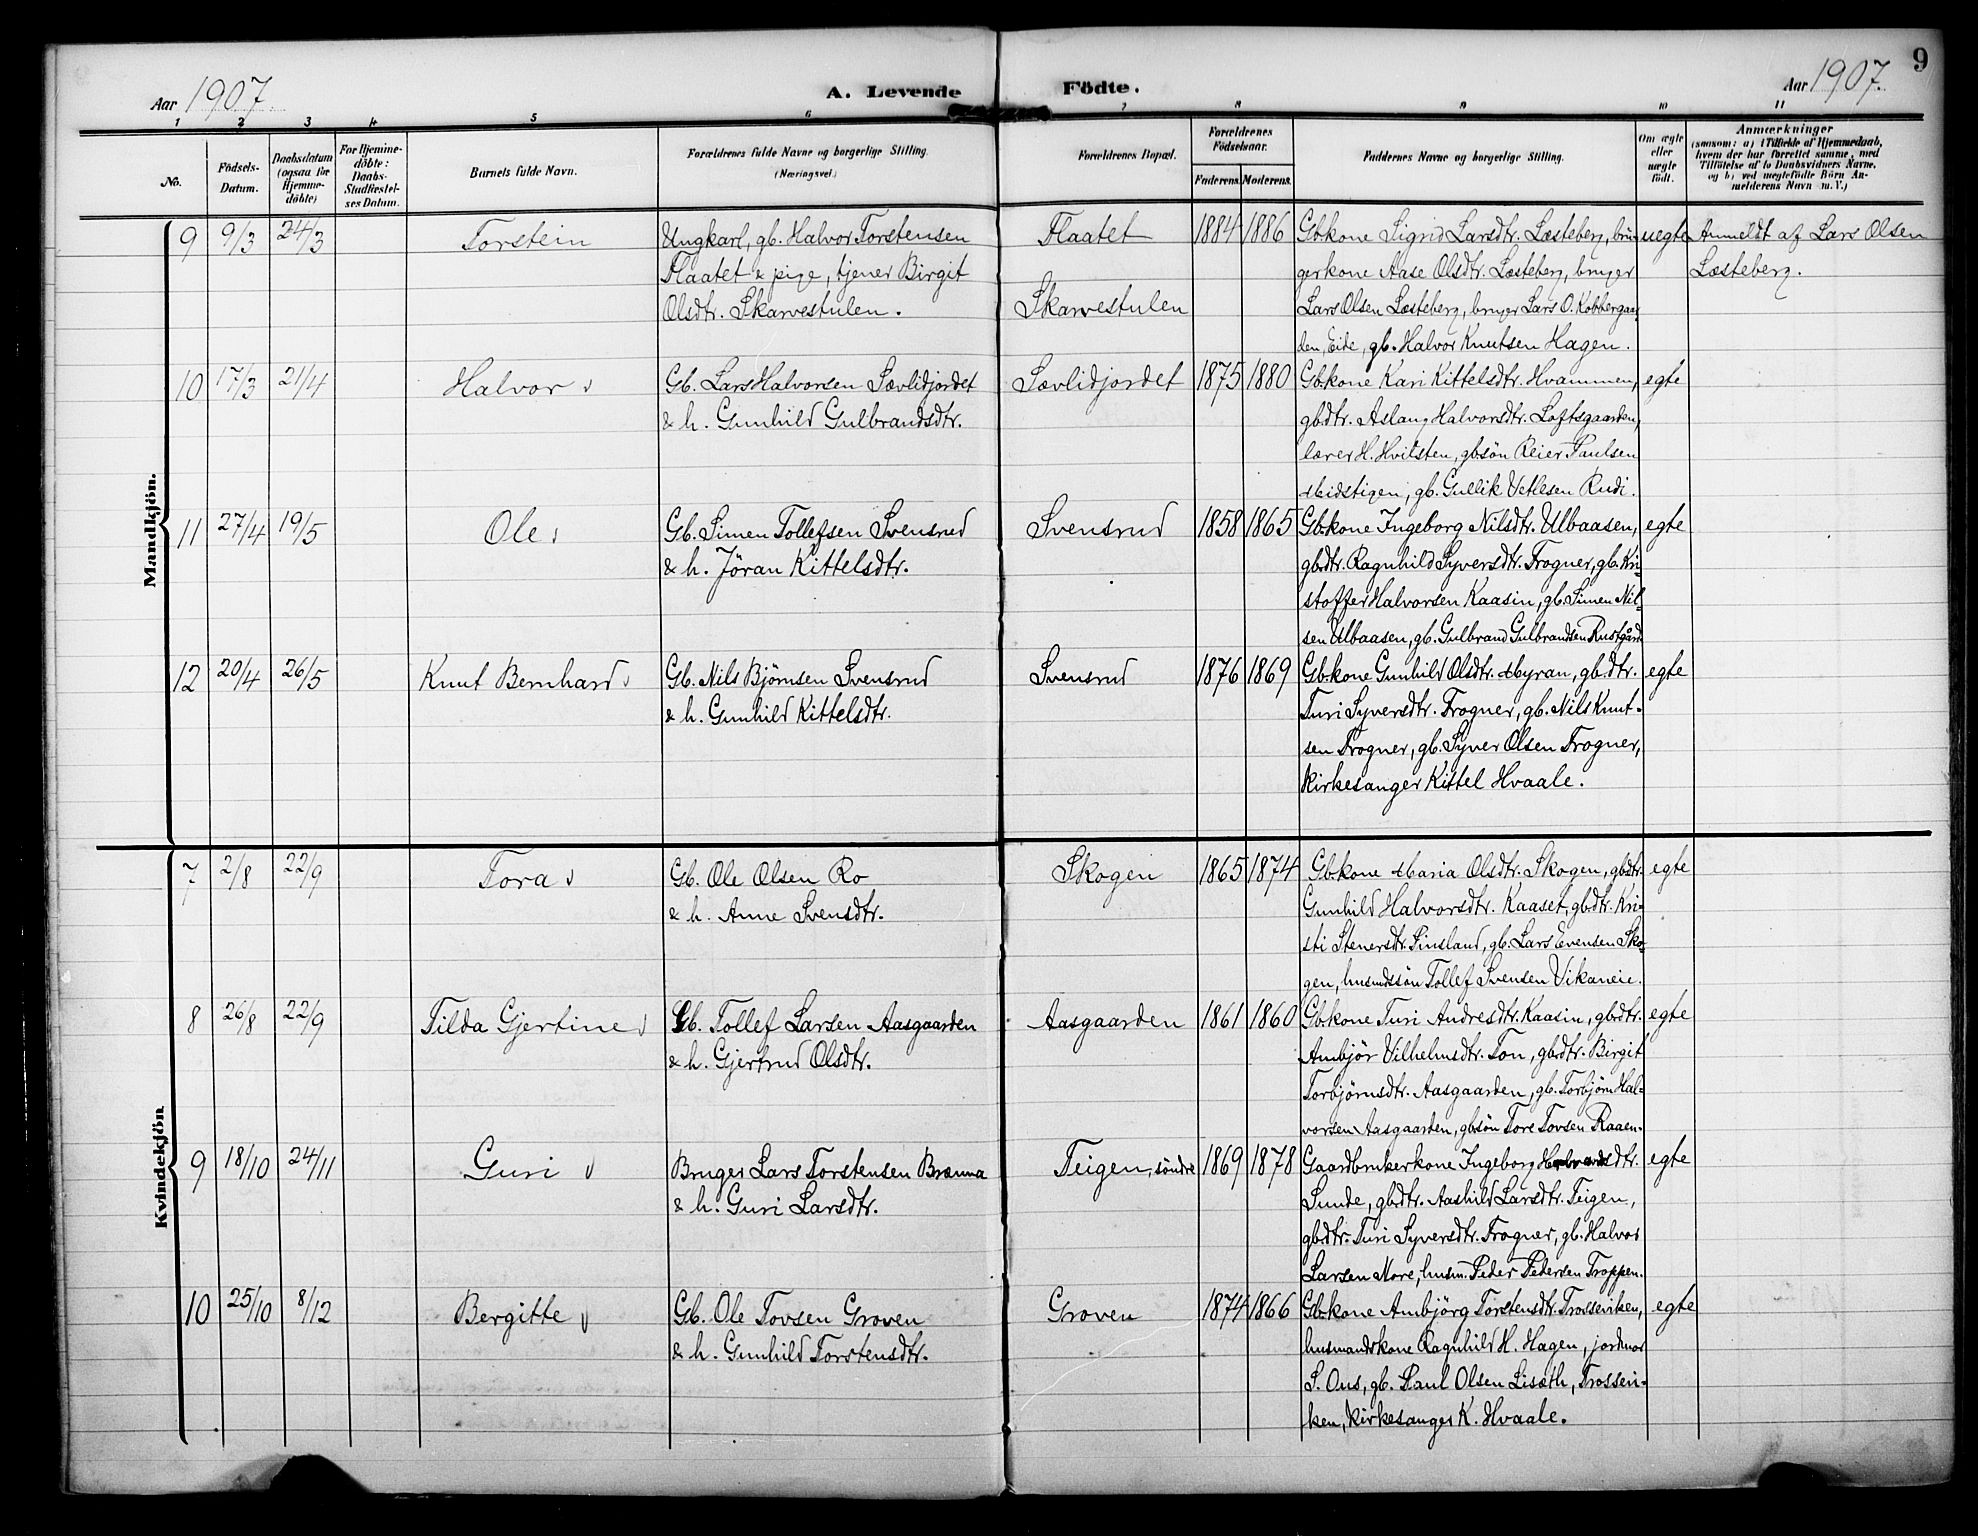 9
Aar 1907. A. Levende Födte. Aar 1907.
1 2 3 4 5 6 7 8 9 10 11
No.
Födsels-
Datum.
Daabsdatum
(ogsaa for
Hjemme-
döbte)
For Hjemme-
döbte:
Daabs-
Stadfæstel-
ses Datum.
Barnets fulde Navn.
Forældrenes fulde Navne og borgerlige Stilling.
(Næringsvei.)
Forældrenes Bopæl.
Forældrenes
Födselsaar.
Faderens. Moderens.
Faddernes Navne og borgerlige Stilling.
Om ægte
eller
uægte
födt.
Anmærkninger
(saasom: a) i Tilfælde af Hjemmedaab,
hvem der har forrettet samme, med
Tilföielse af to Daabsvidners Navne,
og b) ved uægtefödte Börn An-
melderens Navn m. V.)
Mandkjön.
9 9/3 24/3 Torstein
Ungkarl, gb. Halvor Torstensen
Flaatet & pige, tjener Birgit
Olsdtr. Skarvestulen.
Flaatet
Skarvestulen
1884 1886
Gb.kone Sigrid Larsdtr. Læsteberg, bru-
gerkone Aase Olsdtr. Læsteberg, bruger
Lars Olsen Læsteberg, bruger Lars O. Kobbergaar-
den, Eide, gb. Halvor Knutsen Hagen.
uegte
Anmeldt af Lars Olsen
Læsteberg.
10 17/3 21/4 Halvor
Gb. Lars Halvorsen Sævlidjordet
& h. Gunhild Gulbrandsdtr.
Sævlidjordet
1875 1880
Gb.kone Kari Kittelsdtr. Hvammen,
gb.dtr. Aslaug Halvorsdtr. Loftsgaarden,
lærer H. Hvilsten, gb.søn Reier Paulsen
Midstigen, gb. Gullik Vetlesen Rudi.
egte
11 27/4 19/5 Ole
Gb. Simen Tollefsen Svensrud
& h. Jöran Kittelsdtr.
Svensrud
1858 1865
Gb.kone Ingeborg Nilsdtr. Ulbaasen,
gb.dtr. Ragnhild Syversdtr. Frogner, gb. Kri-
stoffer Halvorsen Kaasin, gb. Simen Nil-
sen Ulbaasen, gb. Gulbrand Gulbrandsen Rustgård.
egte
12 20/4 26/5 Knut Bernhard
Gb. Nils Bjömsen Svensrud
& h. Gunhild Kittelsdtr.
Svensrud
1876 1869
Gb.kone Gunhild Olsdtr. Myran, gb.dtr.
Turi Syversdtr. Frogner, gb. Nils Knut-
sen Frogner, gb. Syver Olsen Frogner,
kirkesanger Kittel Hvaale.
egte
Kvindekjön
7 2/8 22/9 Tora
Gb. Ole Olsen Ro
& h. Anne Svensdtr.
Skogen
1865 1874
Gb.kone Maria Olsdtr. Skogen, gb.dtr.
Gunhild Halvorsdtr. Kaaset, gb.dtr. Kri-
sti Stenersdtr. Finsland, gb. Lars Evensen Sko-
gen, husmdssön Tollef Svensen Vikaneie.
egte
8 26/8 22/9 Tilda Gjertine
Gb. Tollef Larsen Aasgaarden
& h. Gjertrud Olsdtr.
Aasgaarden
1861 1860
Gb.kone Turi Andresdtr. Kaasin, gb.dtr.
Ambjör Vilhelmsdtr. Ton, gb.dtr. Birgit
Torbjörnsdtr. Aasgaarden, gb. Torbjörn Hal-
vorsen Aasgaarden, gb.sön Tore Tovsen Raaen.
egte
9 18/10 24/11 Guri
Bruger Lars Torstensen Brænna
& h. Guri Larsdtr.
Teigen, söndre
1869 1878
Gaardbrukerkone Ingeborg Herbrandsdtr.
Sunde, gb.dtr. Aashild Larsdtr. Teigen,
gb.dtr. Turi Syversdtr. Frogner, gb. Halvor
Larsen More, husm. Peder Pedersen Troppen.
egte
10 25/10 8/12 Bergitte
Gb. Ole Tovsen Groven
& h. Gunhild Torstensdtr.
Groven
1874 1866
Gb.kone Ambjörg Torstensdtr. Trosseviken,
husmandskone Ragnhild H. Hagen, jordmor
S. Ous, gb. Paul Olsen Lisæth, Trossevi-
ken, kirkesanger K. Hvaale.
egte